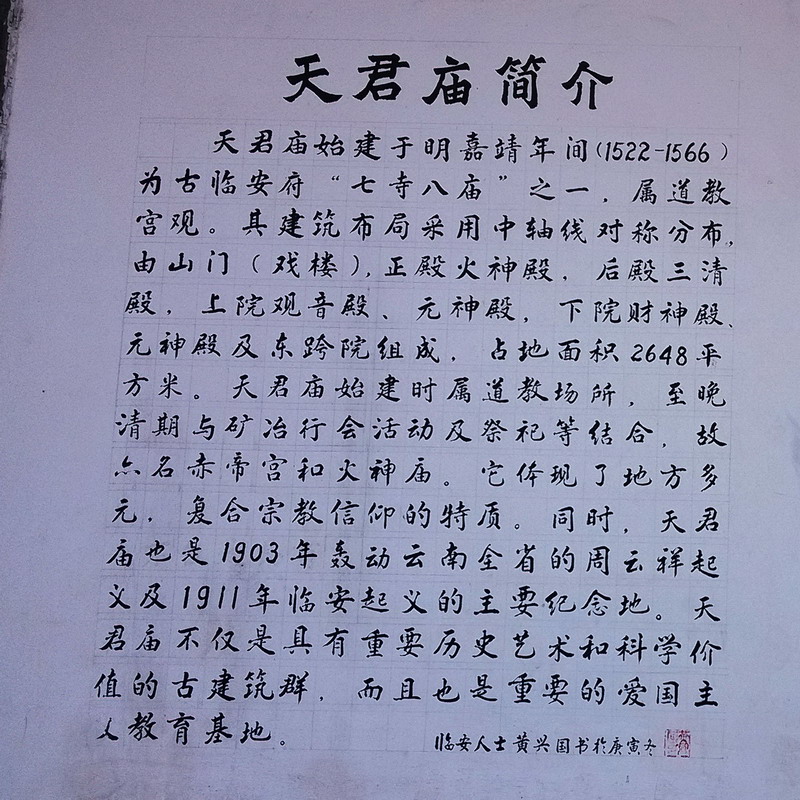 天君庙简介
天君庙始建于明嘉靖年间(1522-1566)
为古临安府“七寺八庙”之一，属道教
宫观。其建筑布局采用中轴线对称分布，
由山门（戏楼），正殿火神殿，后殿三清
殿，上院观音殿、元神殿，下院财神殿、
元神殿及东跨院组成，占地面积2648平
方米。天君庙始建时属道教场所，至晚
清期与矿冶行会活动及祭祀等结合，故
亦名赤帝宫和火神庙。它体现了地方多
元，复合宗教信仰的特质。同时，天君
庙也是1903年轰动云南全省的周云祥起
义及1911年临安起义的主要纪念地。天
君庙不仅是具有重要历史艺术和科学价
值的古建筑群，而且也是重要的爱国主
义教育基地。
临安人士黄兴国书于庚寅冬